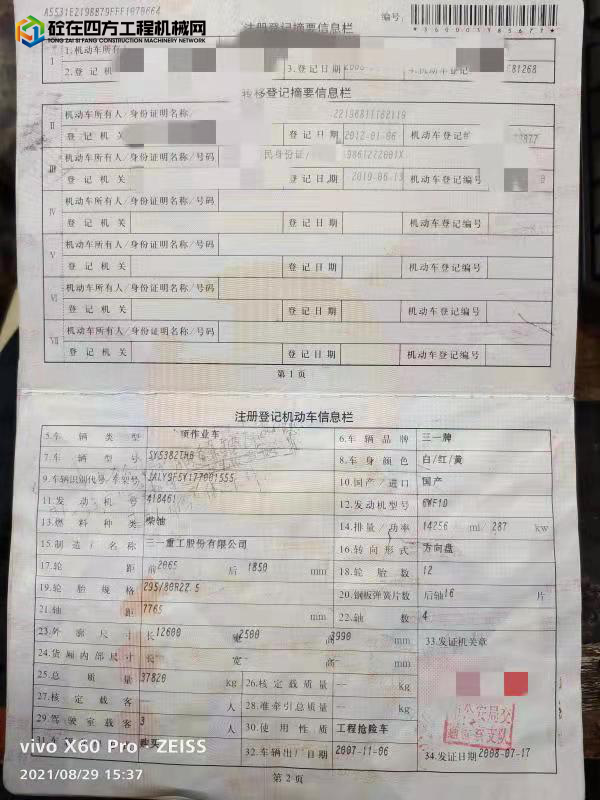 A5531E2198879FFF1978664
编号:
*360003385677*
砼在四方工程机械网
WORLD CONCRETE MACHINERY NETWORK
注册登记摘要信息栏
I
1.机动车所有
2.登记机
3.登记日期
4.机动车登记
81268
转移登记摘要信息栏
II
机动车所有人/身份证明名称/
221968111162119
登记机关
登记日期
2012-01-06
机动车登记编
III
机动车所有人/身份证明名称/号码
民身份证/
登记机关
登记日期
2019-06-13
机动车登记编号
IV
机动车所有人/身份证明名称/号码
登记机关
登记日期
机动车登记编号
V
机动车所有人/身份证明名称/号码
登记机关
登记日期
机动车登记编号
VI
机动车所有人/身份证明名称/号码
登记机关
登记日期
机动车登记编号
VII
机动车所有人/身份证明名称/号码
登记机关
登记日期
机动车登记编号
第1页
注册登记机动车信息栏
5.车辆类型 项作业车 6.车辆品牌 三一牌
7.车辆型号 SY5382THB 8.车身颜色 白/红/黄
9.车辆识别代号/车架号 JALYSF5Y177001555 10.国产/进口 国产
11.发动机号 418461 12.发动机型号 6WF1D
13.燃料种类 柴油 14.排量/功率 14256 ml/ 287 kw
15.制造厂名称 三一重工股份有限公司 16.转向形式 方向盘
17.轮距 前2065 后1850 mm 18.轮胎数 12
19.轮胎规格 295/80R22.5 20.钢板弹簧片数 后轴16 片
21.轴距 7765 mm 22.轴数 4
23.外廓尺寸 长12600 宽2500 高3990 mm 33.发证机关章
24.货厢内部尺寸 长-- 宽-- 高-- mm
25.总质量 37820 kg 26.核定载质量 -- kg
27.核定载客 -- 人 28.准牵引总质量 -- kg
29.驾驶室载客 3 人 30.使用性质 工程抢险车
购买 32.车辆出厂日期 2007-11-06 34.发证日期 2008-07-17
公安局交
第2页
vivo X60 Pro · ZEISS
2021/08/29 15:37